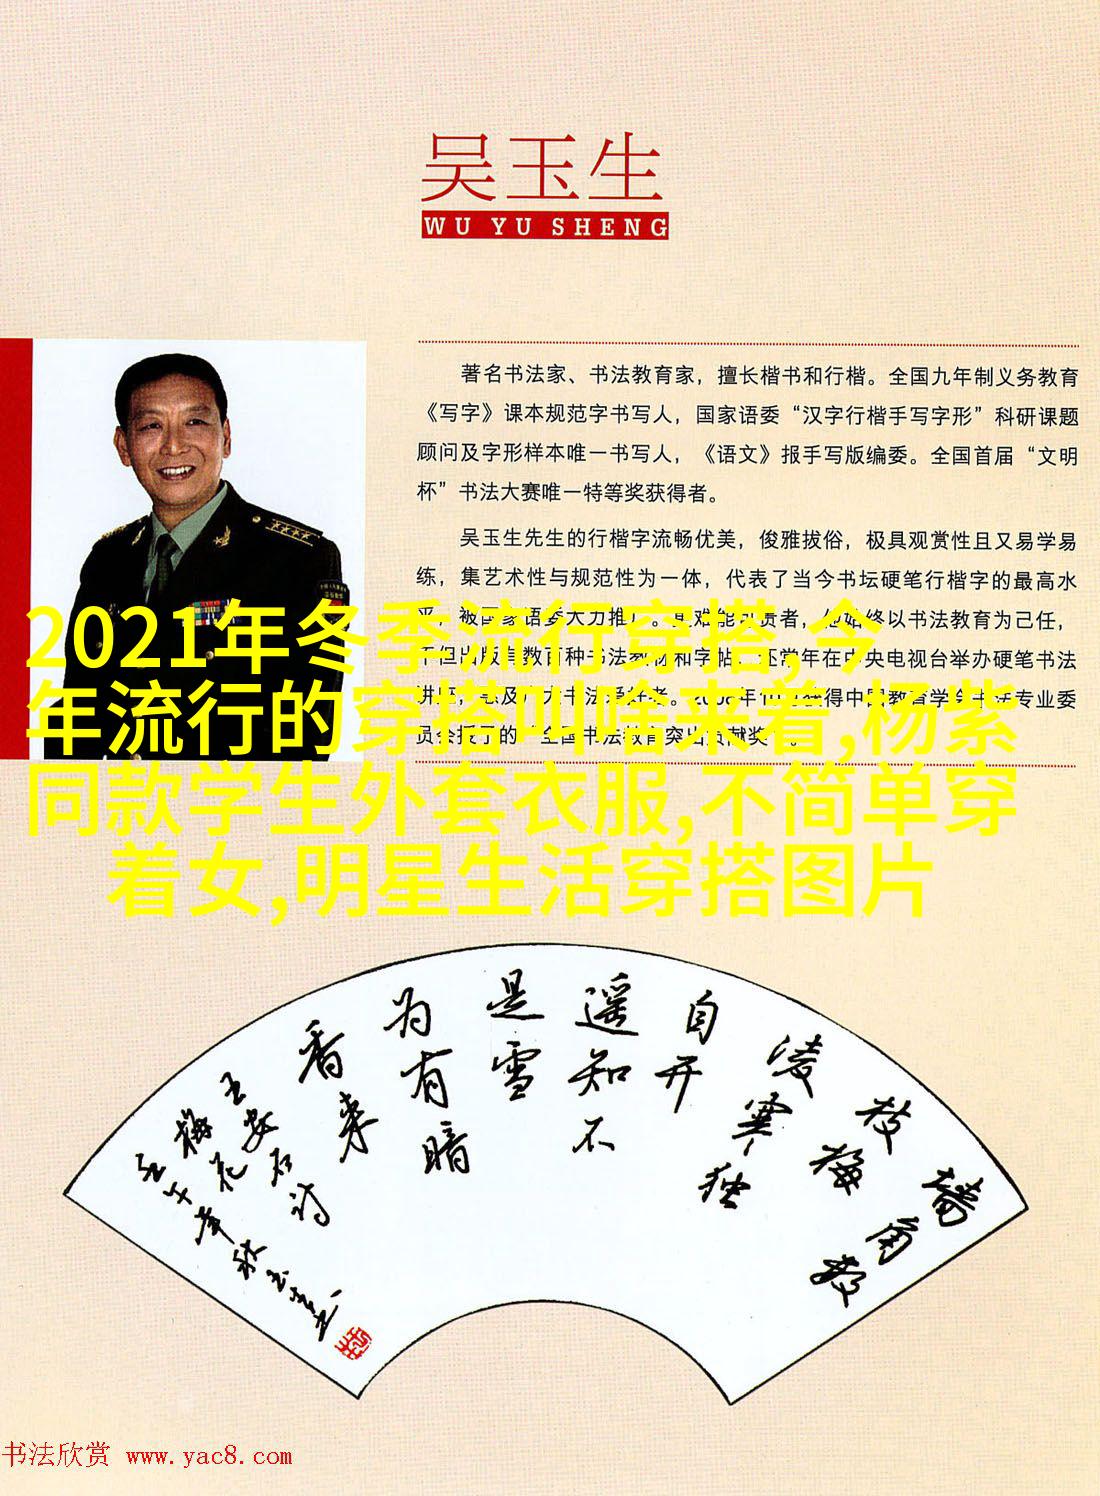 吴玉生
WU YU SHENG
著名书法家、书法教育家，擅长楷书和行楷。全国九年制义务教育
《写字》课本规范字书写人，国家语委“汉字行楷手写字形”科研课题
顾问及字形样本唯一书写人，《语文》报手写版编委。全国首届“文明
杯”书法大赛唯一特等奖获得者。
吴玉生先生的行楷字流畅优美，俊雅拔俗，极具观赏性且又易学易
练，集艺术性与规范性为一体，代表了当今书坛硬笔行楷字的最高水
被国家语委大力推
者，
始终以书法教育为己任，
数百种书法教材和字帖
还常年在中央电视台举办硬笔书法
获得中国教育学会书法专业委
员会授予的“全国书法教育突出贡献奖”。
2021年冬季流行穿搭,今
年流行的穿搭叫啥来着,杨紫
同款学生外套衣服,不简单穿
着女,明星生活穿搭图片
墙角数
枝梅
凌寒独
自开
遥知不
是雪
为有暗
香来
王安石诗
梅花
壬午年秋玉生书
书法欣赏 www.yac8.com